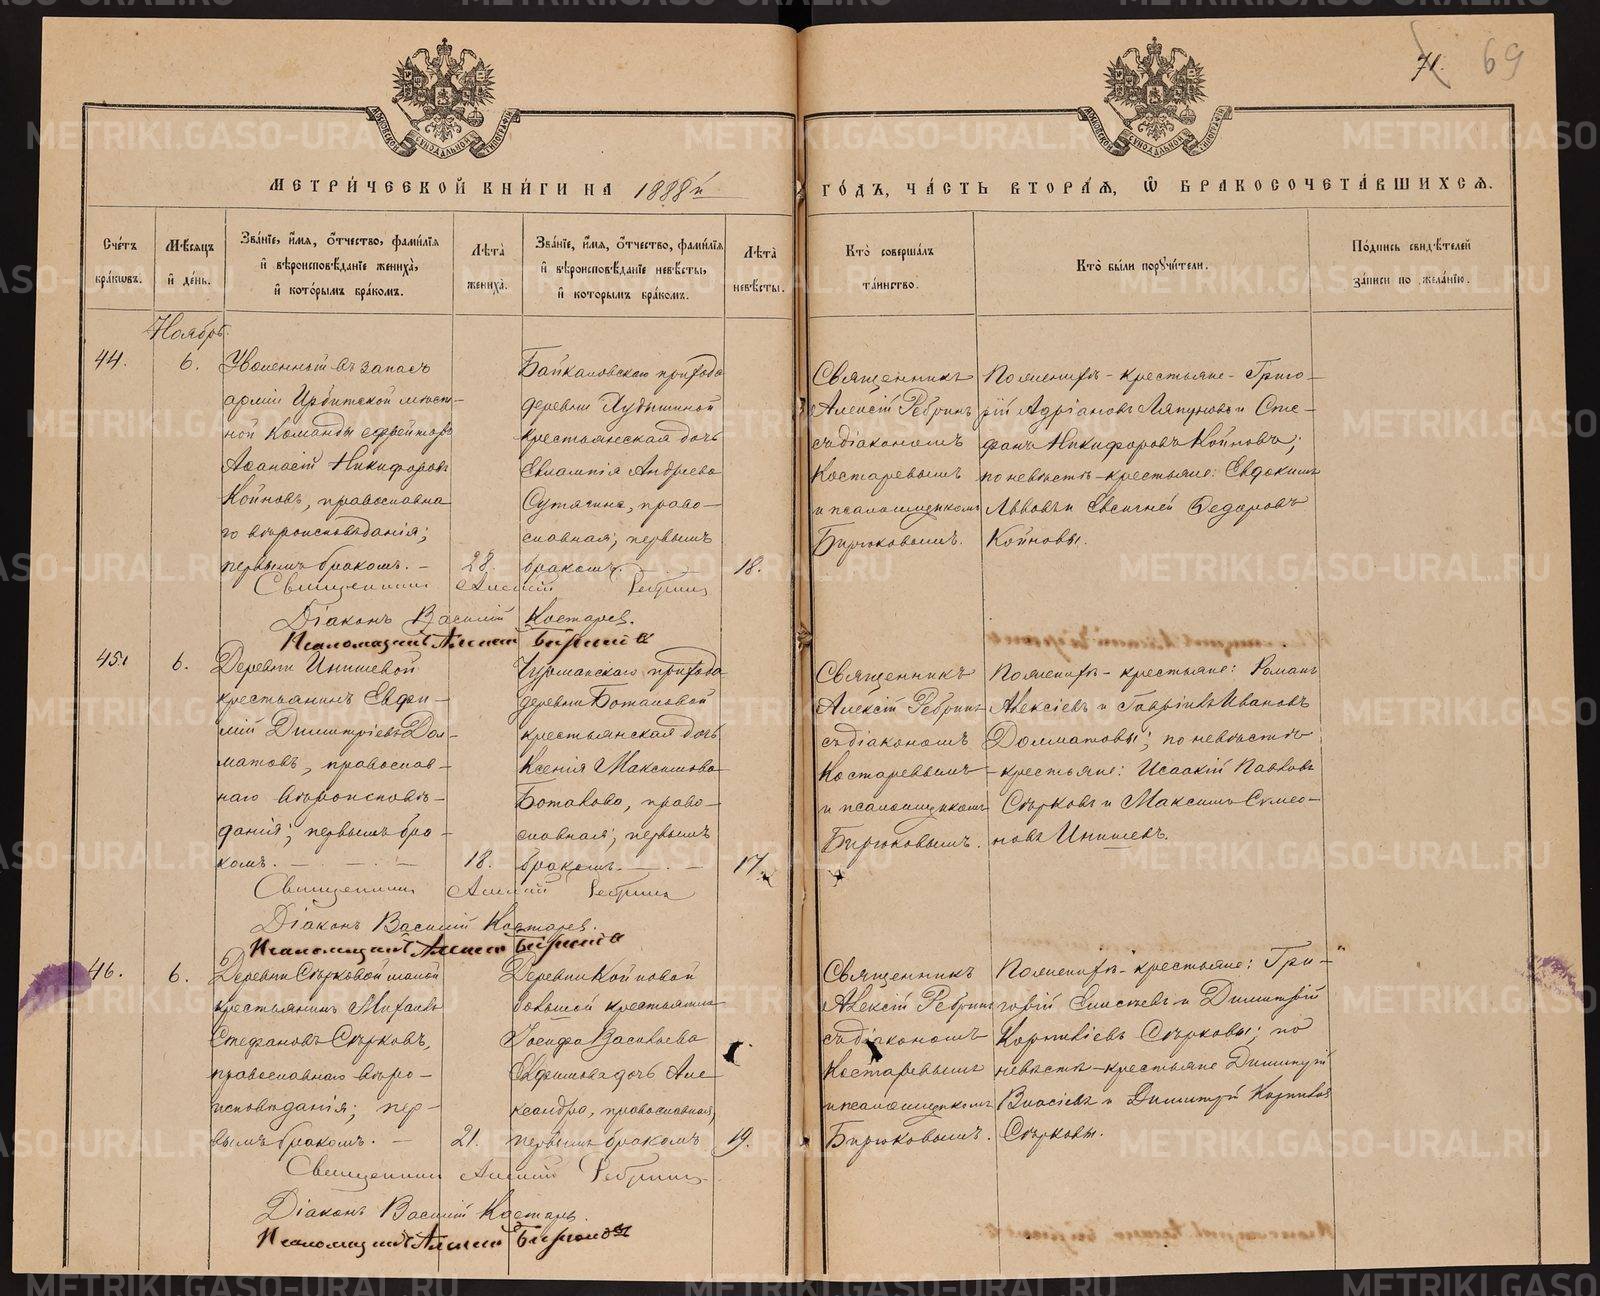 71. 69
МЕТРИЧЕСКОЙ КНИГИ НА 1888й ГОДЪ, ЧАСТЬ ВТОРАЯ, Ѿ БРАКОСОЧЕТАВШИХСЯ.
Счетъ браковъ.
Мѣсяцъ и день.
Званіе, имя, отчество, фамилія и вѣроисповѣданіе жениха, и которымъ бракомъ.
Лѣта жениха.
Званіе, имя, отчество, фамилія и вѣроисповѣданіе невѣсты, и которымъ бракомъ.
Лѣта невѣсты.
Кто совершалъ таинство.
Кто были поручители.
Подпись свидѣтелей записи по желанію.
Ноябрь.
44.
6.
Уволенный въ запасъ
арміи Ирбитской мѣст-
ной команды ефрейторъ
Аѳанасій Никифоровъ
Койновъ, православна
го вѣроисповѣданія;
первымъ бракомъ. -
28.
Байкаловскаго прихода
деревни
крестьянская дочь
Евлампія Андреева
Сутягина, право-
славная; первымъ
бракомъ.
18.
Священникъ
Алексій Ребринъ
съ діакономъ
Костаревымъ
и псаломщикомъ
Бирюковымъ.
По женихѣ - крестьяне - Григо-
рій Адріановъ Ляпуновъ и Сте-
фанъ Никифоровъ Койновъ;
по невѣстѣ - крестьяне: Евдокимъ
Львовъ и Евсигней Ѳедоровъ
Койновы.
Священникъ Алексій Ребринъ
Діаконъ Василій Костарев.
Псаломщикъ Алексѣй Бирюковъ
45.
6.
Деревни Инишевой
крестьянинъ Евфи-
мій Димитріевъ Дол-
матовъ, православ-
наго вѣроисповѣ-
данія; первымъ бра-
комъ.
18.
прихода
деревни Боталовой
крестьянская дочь
Ксенія Максимова
Боталова, право-
славная; первымъ
бракомъ.
17.
Священникъ
Алексій Ребринъ
съ діакономъ
Костаревымъ
и псаломщикомъ
Бирюковымъ.
По женихѣ - крестьяне: Романъ
Алексіевъ и Гавріилъ Ивановъ
Долматовы; по невѣстѣ
- крестьяне: Исаакій Павловъ
Сѣрковъ и Максимъ Симео-
новъ Инишевъ.
Священникъ Алексій Ребринъ
Діаконъ Василій Костарев.
Псаломщикъ Алексѣй Бирюковъ
46.
6.
Деревни Сѣрковой малой
крестьянинъ Михаилъ
Стефановъ Сѣрковъ,
православнаго вѣро-
исповѣданія; пер-
вымъ бракомъ. -
21.
Деревни Койновой
большой крестьянина
Іосифа Васильева
Евфимова дочь Але-
ксандра, православная,
первымъ бракомъ
19.
Священникъ
Алексій Ребринъ
съ діакономъ
Костаревымъ
и псаломщикомъ
Бирюковымъ.
По женихѣ - крестьяне: Гри-
горій Елисѣевъ и Димитрій
Корниліевъ Сѣрковы; по
невѣстѣ - крестьяне Димитрій
Власіевъ и Димитрій Корниліев
Сѣрковы.
Священникъ Алексій Ребринъ
Діаконъ Василій Костарев.
Псаломщикъ Алексѣй Бирюковъ
METRIKI.GASO-URAL.RU